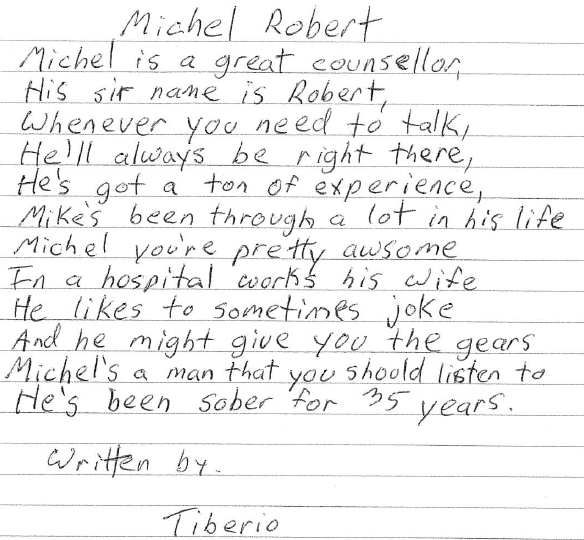 Michel Robert
Michel is a great counsellor,
His sir name is Robert,
Whenever you need to talk,
He'll always be right there,
He's got a ton of experience,
Mike's been through a lot in his life
Michel you're pretty awsome
In a hospital works his wife
He likes to sometimes joke
And he might give you the gears
Michel's a man that you should listen to
He's been sober for 35 years.
Written by.
Tiberio